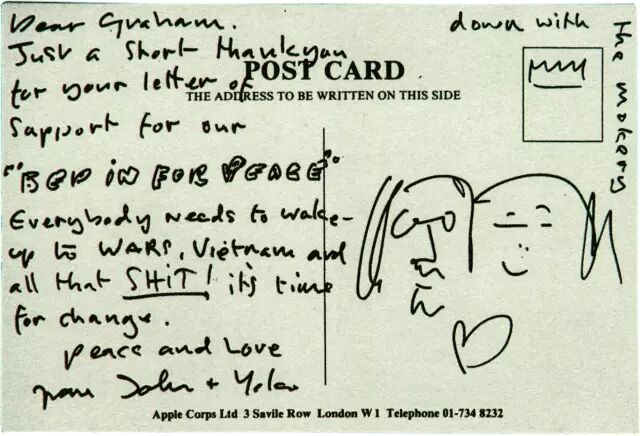 Dear Graham.
Just a short thankyou
for your letter of
support for our
"BED IN FOR PEACE"
Everybody needs to wake-
up to WARS, Vietnam and
all that SHIT! it's time
for change.
peace and love
from John + Yoko
down with
the mokers
POST CARD
THE ADDRESS TO BE WRITTEN ON THIS SIDE
Apple Corps Ltd 3 Savile Row London W1 Telephone 01-734 8232